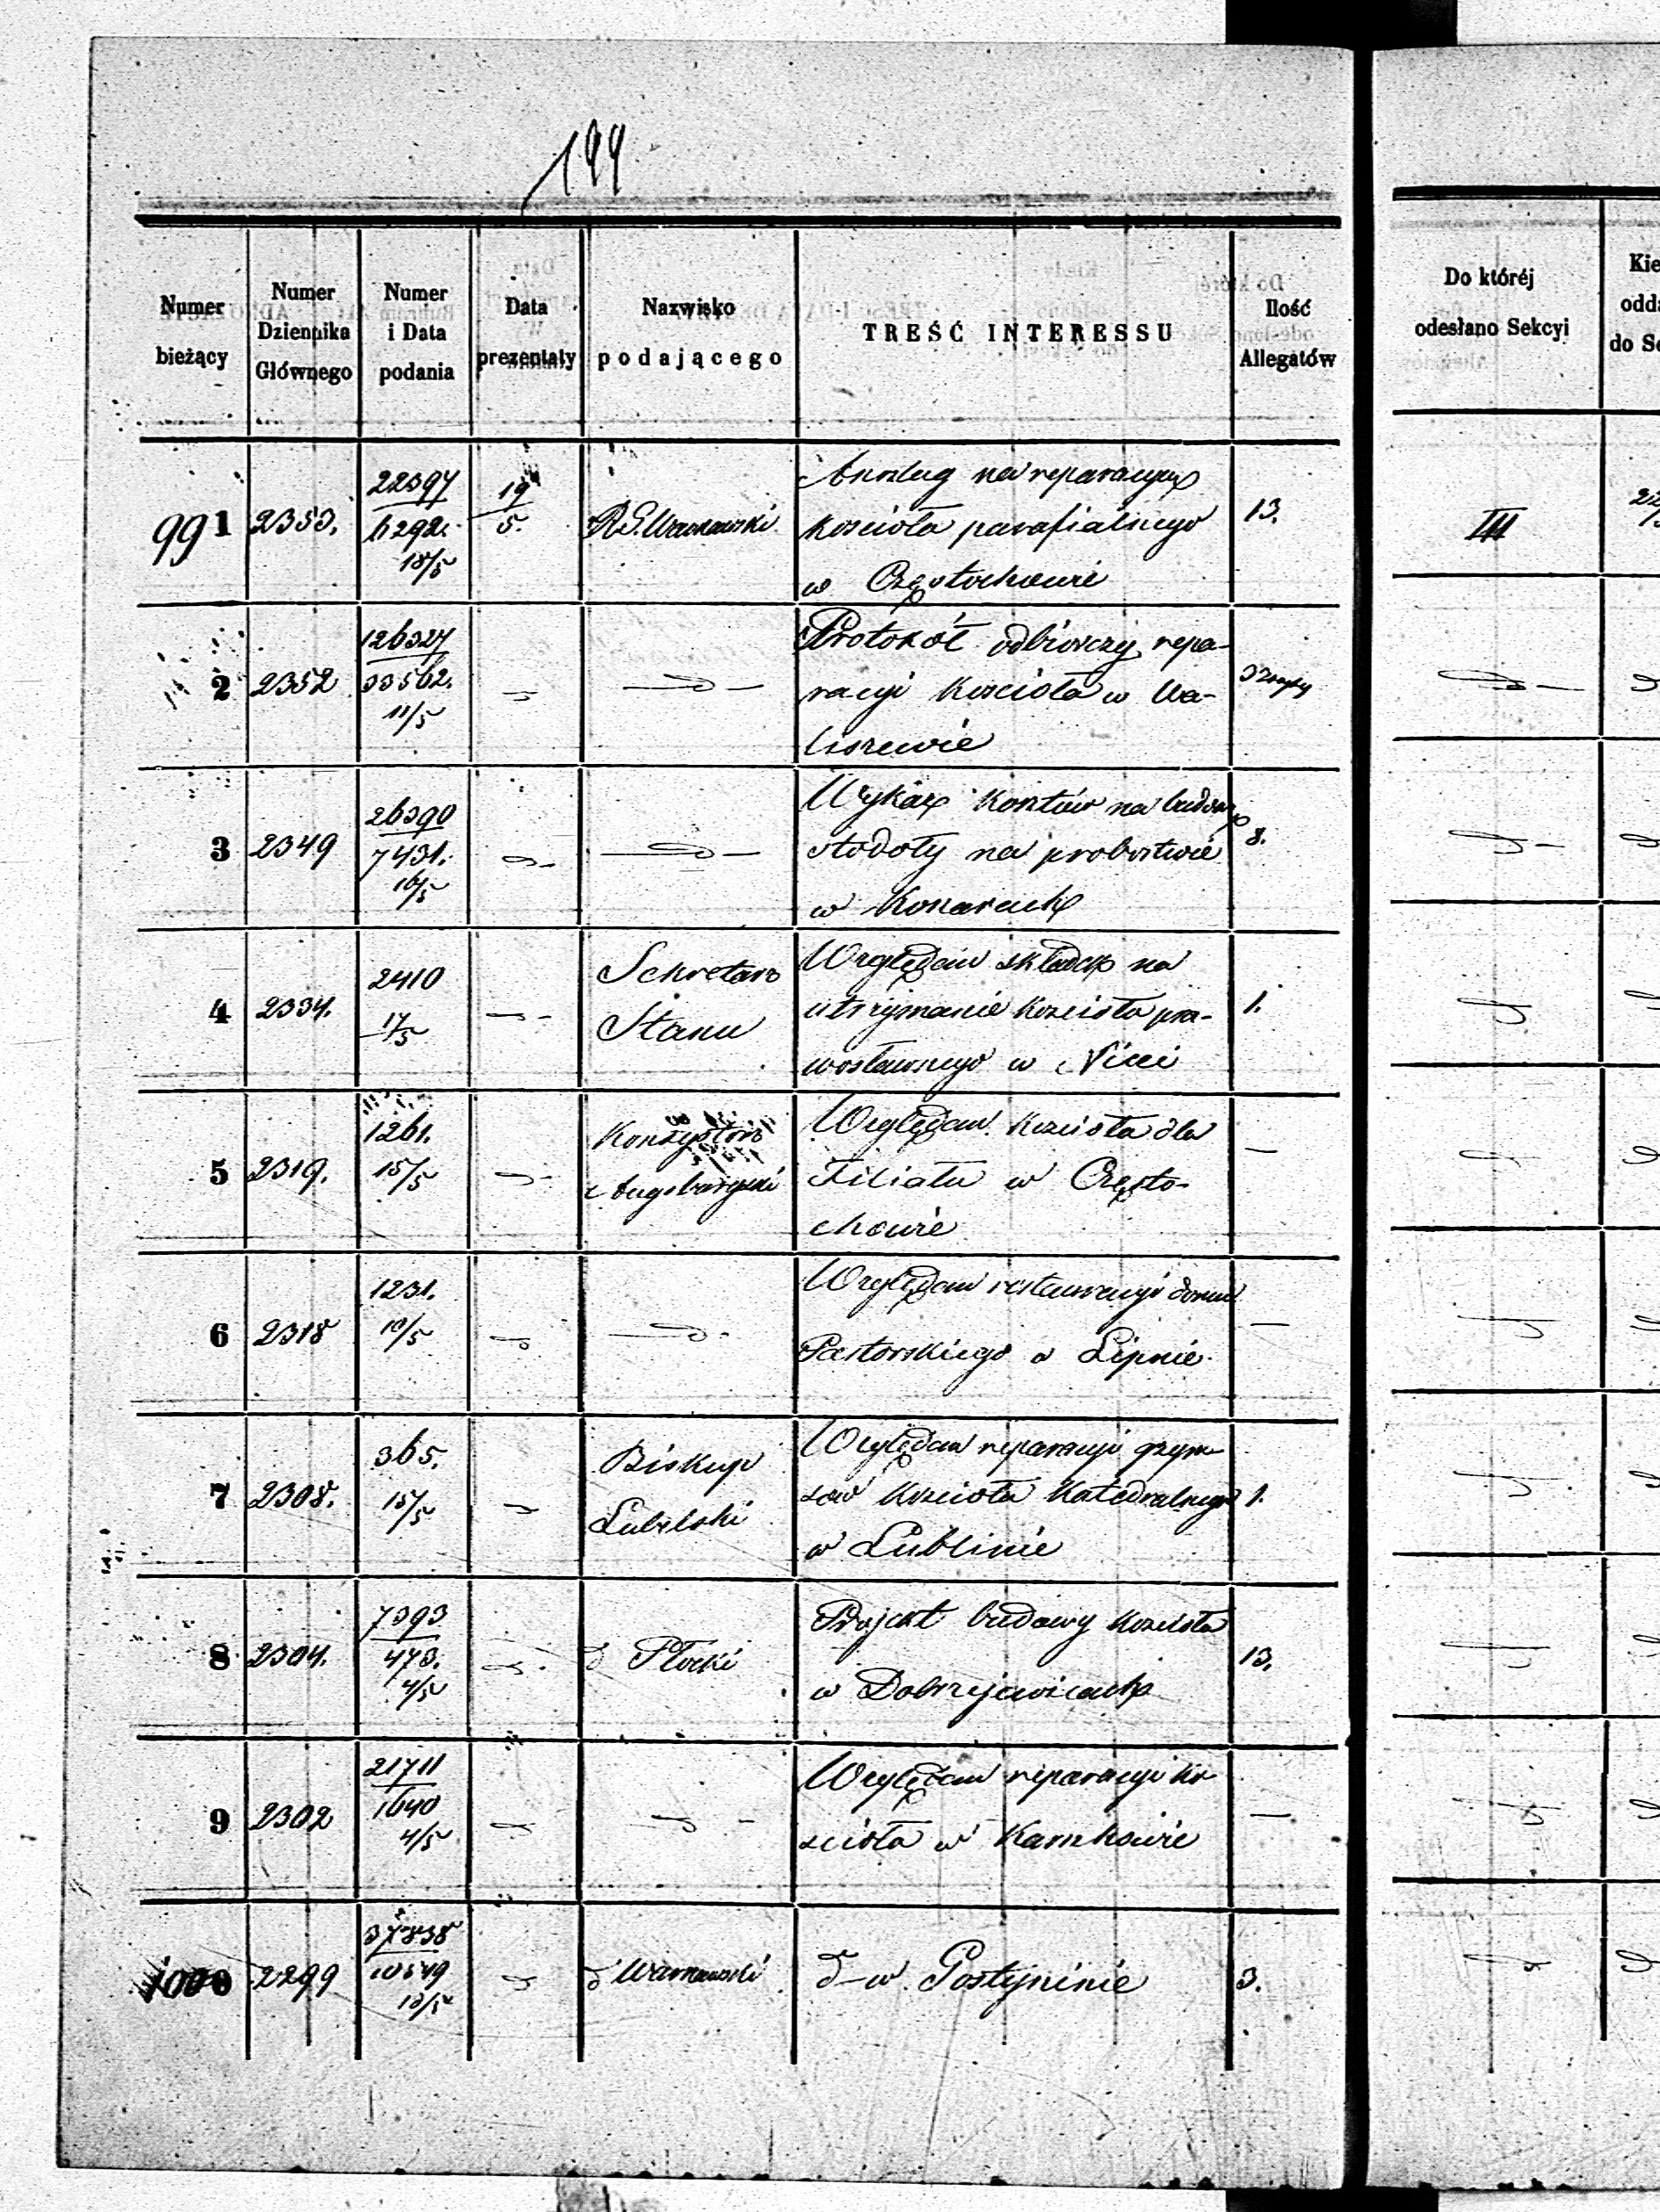 199
Numer bieżący
Numer Dziennika Głównego
Numer i Data podania
Data prezentaty
Nazwisko podającego
TREŚĆ INTERESSU
Ilość Allegatów
Do któréj odesłano Sekcyi
991 2353. 22397 6292. 18/5 19/5. R.G. Warszawski
Anszlag na reparacyą
kościoła parafialnego
w Częstochowie
13.
III
2 2352 126327 33562. 11/5
Protokół odbiorczy repa-
racyi kościoła w Wa-
liszewie
3 2349 26390 7431. 16/5
Wykaz kosztów na budowę
stodoły na probostwie
w Konarach
8.
4 2334. 2410 17/5
Sekretarz
Stanu
Względem składek na
utrzymanie kościoła pra-
wosławnego w Nicei
1.
5 2319. 1261. 15/5
Konsystorz
Augsburgski
Względem kościoła dla
Filiału w Często-
chowie
6 2318 1231. 10/5
Względem restauracyi domu
Pastorskiego w Lipnie
7 2308. 365. 15/5
Biskup
Lubelski
Względem reparacyi gzym-
sów kościoła Katedralnego
w Lublinie
1.
8 2304. 7393 473. 4/5
d Płocki
Projekt budowy kościoła
w Dobrzejewicach
13.
9 2302 21711 1640 4/5
Względem reparacyi ko-
scioła w Karnkowie
1000 2299 37838 10549 13/5
d Warszawski
d-w Gostyninie
3.